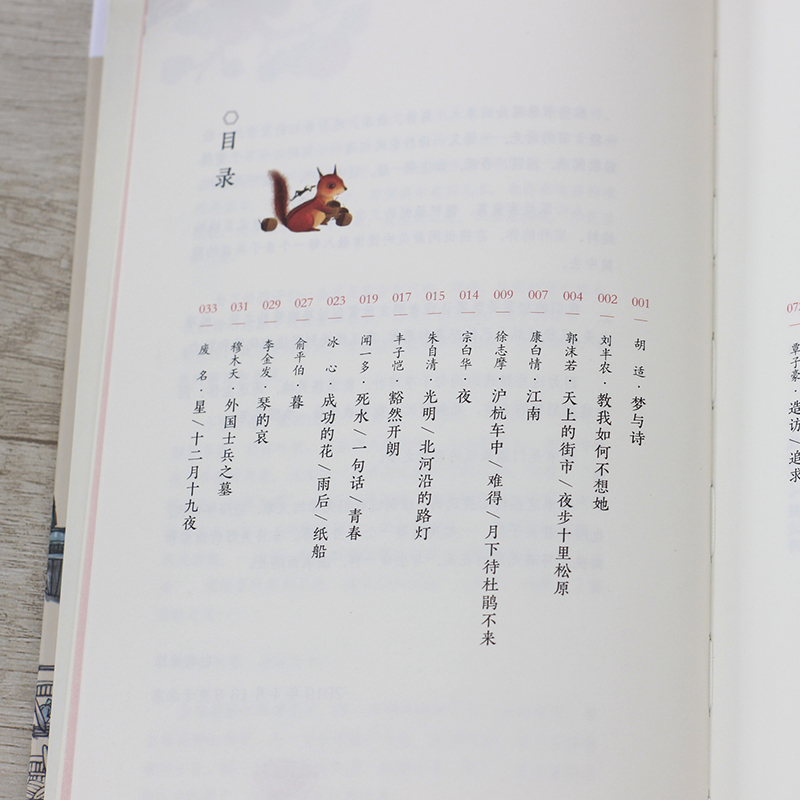 目录
001 胡适·梦与诗
002 刘半农·教我如何不想她
004 郭沫若 天上的街市/夜步十里松原
007 康白情·江南
009 徐志摩·沪杭车中/难得/月下待杜鹃不来
014 宗白华·夜
015 朱自清·光明/北河沿的路灯
017 丰子恺 豁然开朗
019 闻一多·死水/一句话/青春
023 冰心·成功的花/雨后/纸船
027 俞平伯·暮
029 李金发·琴的哀
031 穆木天·外国士兵之墓
033 废名·星/十二月十九夜
章子豪·造访/追求